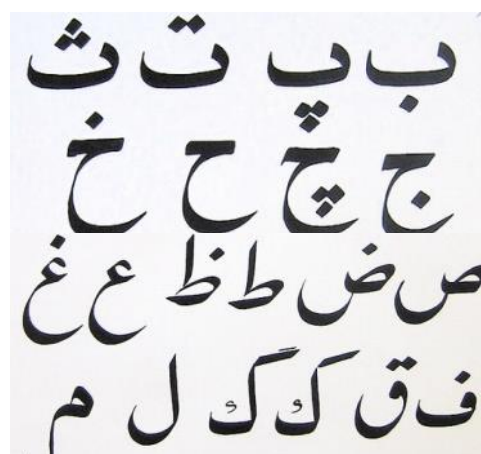 ب پ ت ث
ج چ ح خ
ص ض ط ظ ع غ
ف ق ک گ ل م